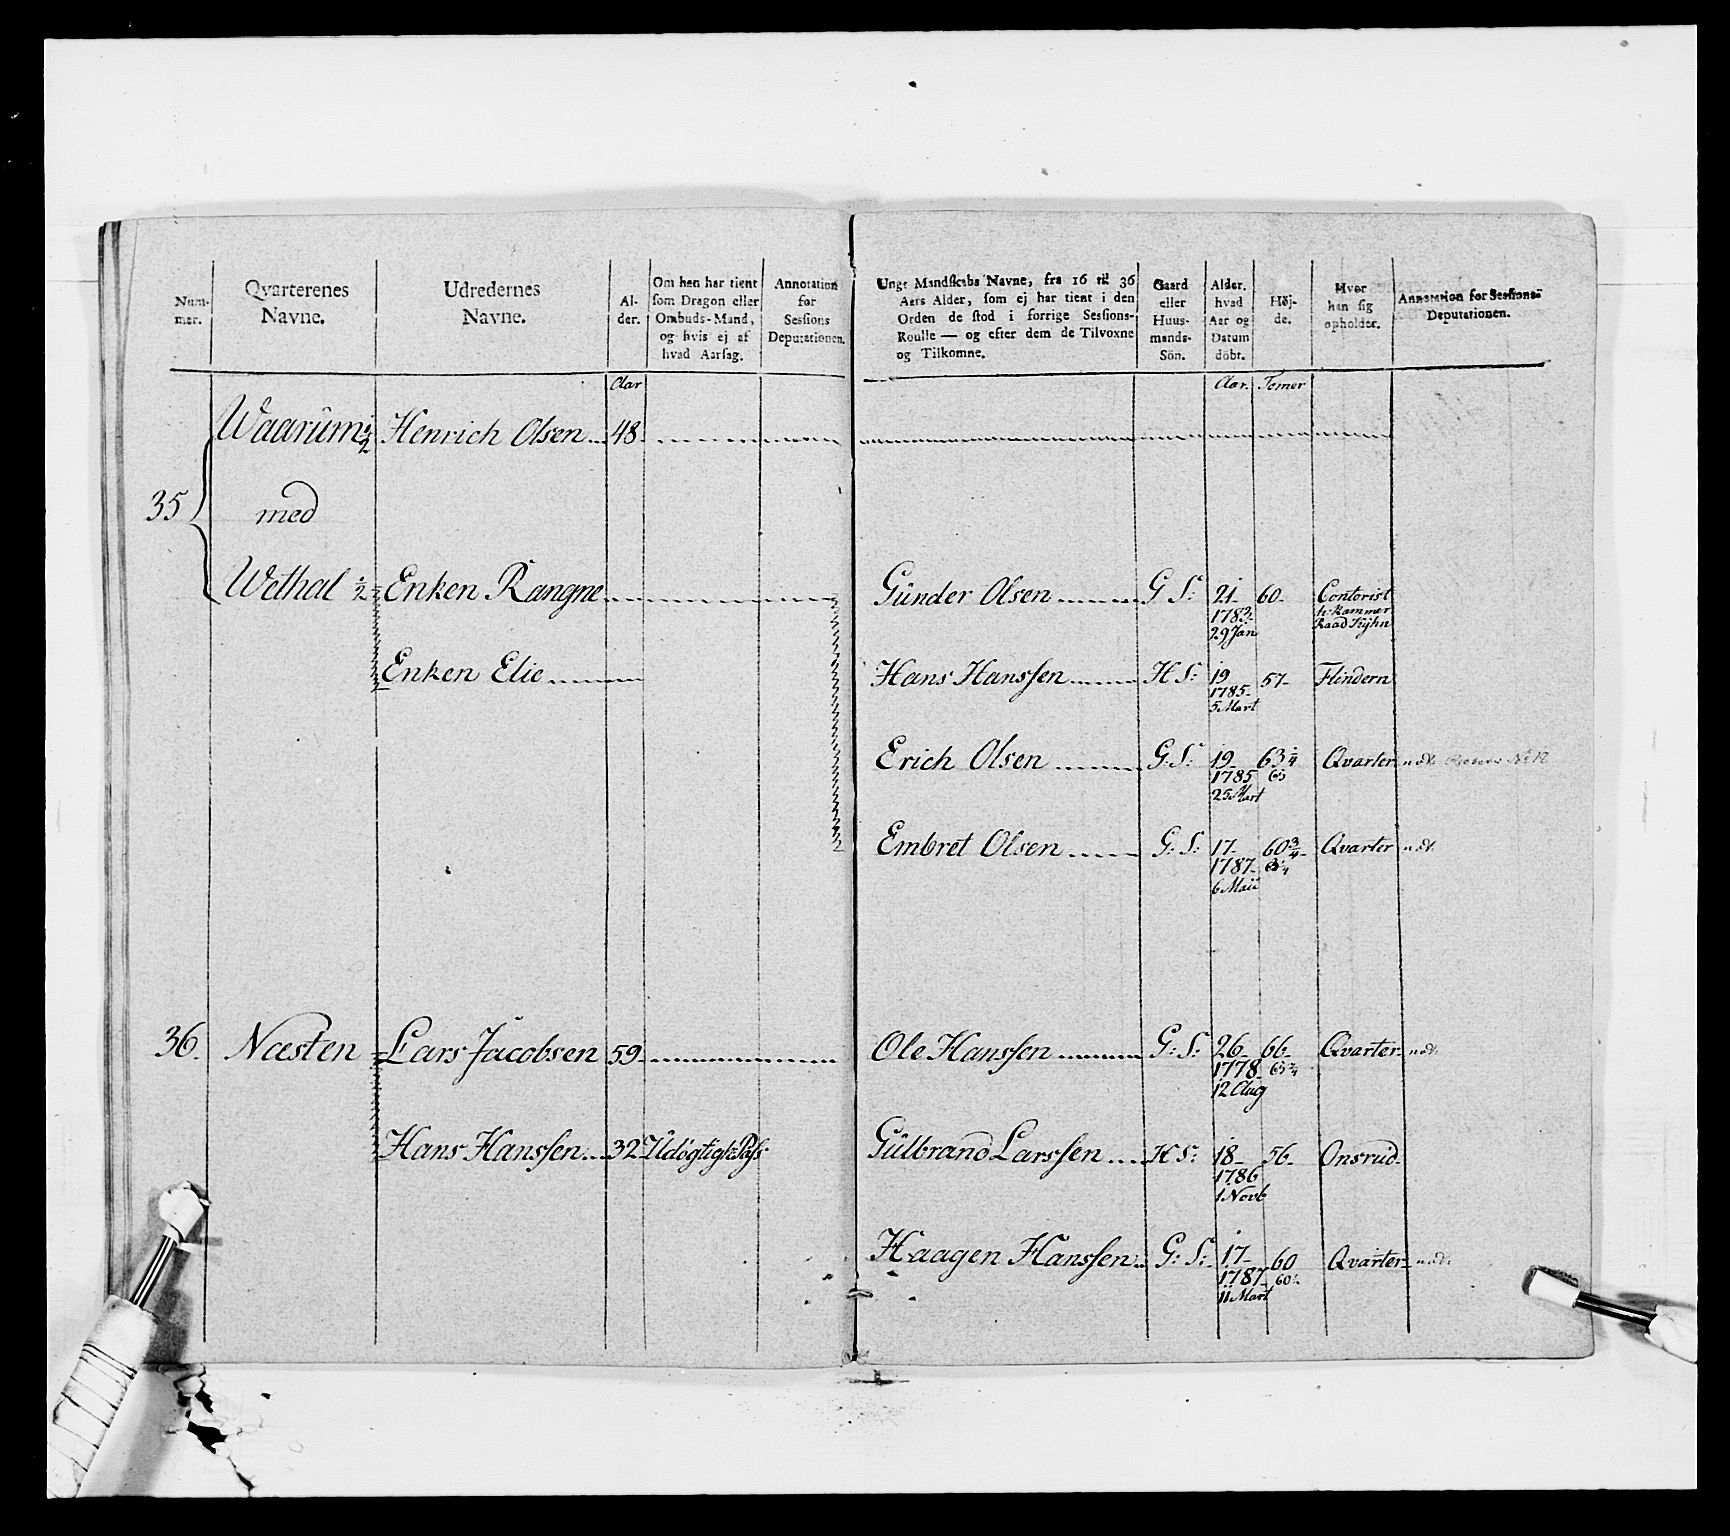 Num-
mer.
Qvarterenes
Navne.
Udredernes
Navne.
Al-
der.
Om han har tient
som Dragon eller
Ombuds-Mand,
og hvis ej af
hvad Aarsag.
Annotation
for
Sessions
Deputationen.
Ungt Mandskabs Navne, fra 16 til 36
Aars Alder, som ej har tient i den
Orden de stod i forrige Sessions-
Roulle — og efter dem de Tilvoxne
og Tilkomne.
Gaard
eller
Huus-
mands-
Sön.
Alder.
hvad
Aar og
Datum
döbt.
Höj-
de.
Hvor
han sig
opholder.
Annotation for Sessions
Deputationen.
Aar
Aar. Tomer
Waarüm ½ Henrich Olsen 48
35 med
Wethal ½ Enken Rangne Günder Olsen G S: 21 60 Contorist
1783 Kammer
29 Jan Raad
Enken Elie Hans Hanssen H S: 19 57 Flindern
1785
5 Mart
Erich Olsen G: S: 19 63¼ Qvarter
1785 65
25 Mart
Embret Olsen G: S: 17 60¾ Qvarter
1787
6 Maii
36. Næsten Lars Jacobsen 59 Ole Hanssen G: S: 26 66 Qvarter
1778
12 Aug
Hans Hanssen 32 Udögtigk: Pass Gülbrand Larssen H S: 18 56 Onsrud
1786
1 Novb
Haagen Hanssen G: S: 17 60 Qvarter
1787
11 Mart